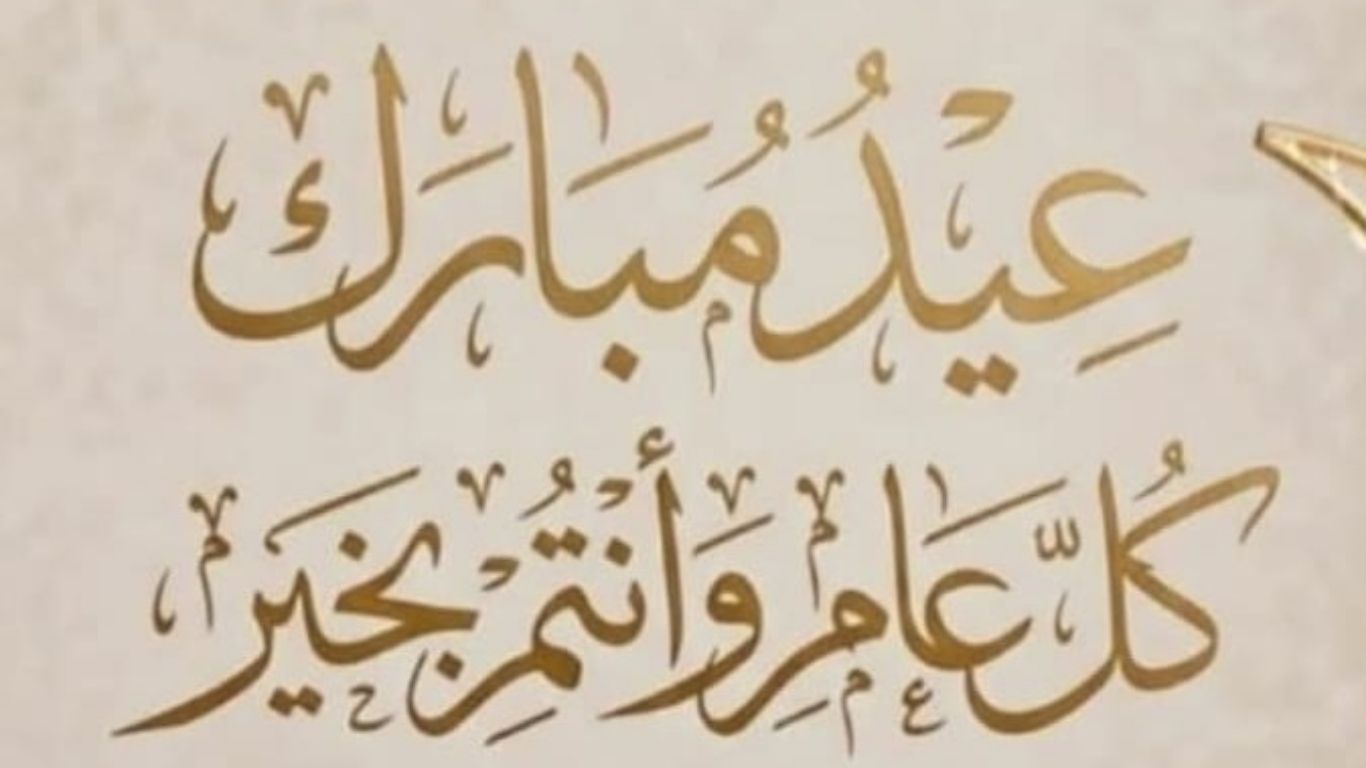 عِيْدُ مُبَارَك
كُلّ عَامِ وَأَنْتُمْ بِخَيْر